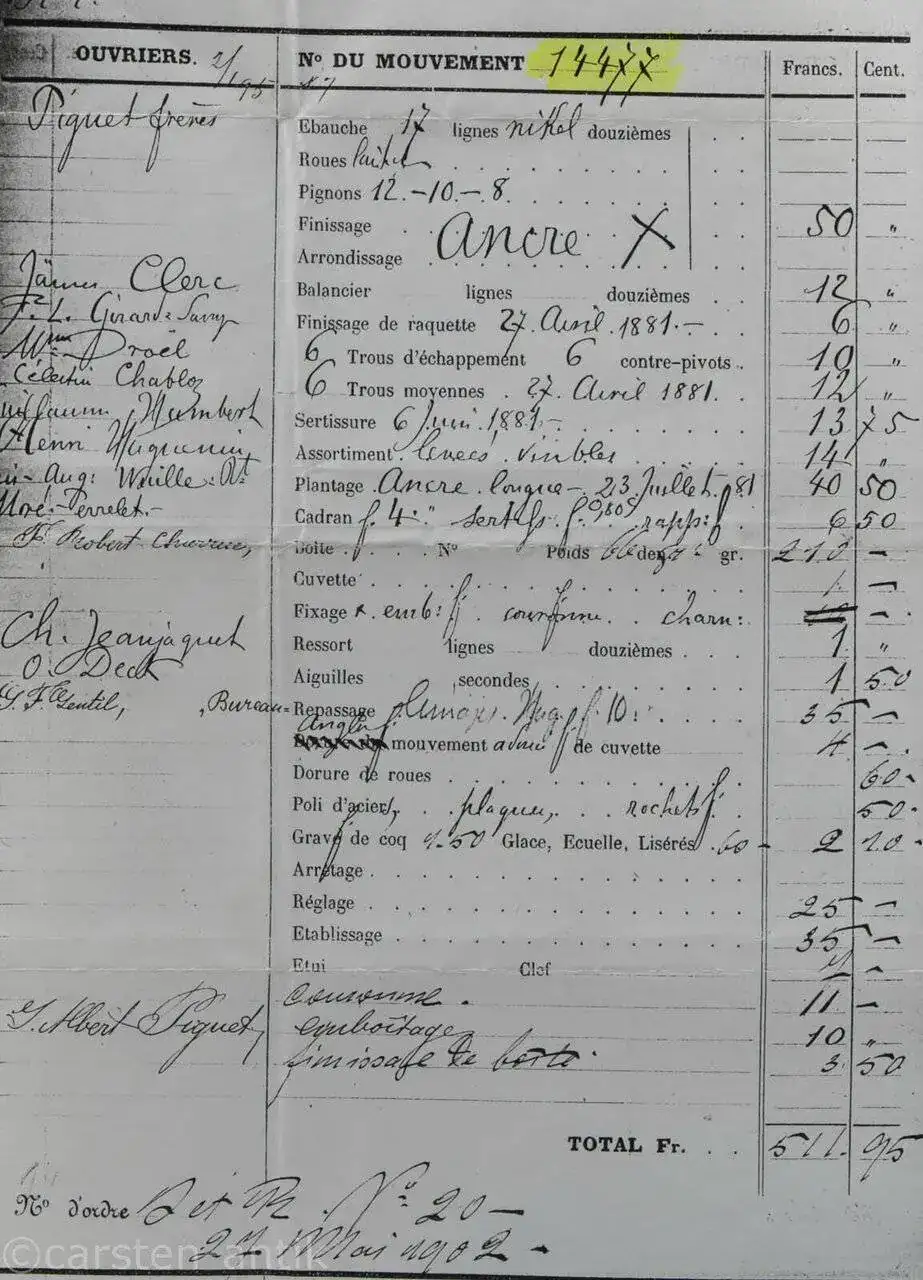 OUVRIERS. N° DU MOUVEMENT 14477 Francs. Cent.
Piguet frères Ebauche 17 lignes nikel douzièmes
Roues
Pignons 12.-10.-8.
Finissage Ancre X 50 "
Arrondissage
Clerc Balancier lignes douzièmes 12 "
Girard Finissage de raquette 27. Avril. 1881.- 6 "
Droël 6 Trous d'échappement 6 contre-pivots 10 "
Célestin Chabloz 6 Trous moyennes 27. Avril 1881. 12 "
Humbert Sertissure 6 Juin 1881.- 13 75
Henri Huguenin Assortiment levées visibles 14 "
Aug: Plantage Ancre longue - 23 Juillet 81 40 50
Perrelet.- Cadran f. 4." 6 50
Robert Boite N° Poids gr. 210 -
Cuvette
Fixage emb: charn:
Ch. Jeanjaquet Ressort lignes douzièmes 1 "
O. Aiguilles secondes 1 50
Gentil, Bureau Repassage f. 10. 35 -
mouvement de cuvette 4 -
Dorure de roues 60-
Poli d'aciers, plaques, rochets 50-
Grav de coq 1.50 Glace, Ecuelle, Lisérés 60 - 2 10-
Arrêtage
Réglage 25 -
Etablissage 35 -
Etui Clef
couronne. 11 -
Albert Piguet, emboîtage 10 "
finissage de boîte. 3 50
TOTAL Fr. 511. 95
N° d'ordre N° 20 -
27 Mai 1902 -
©carsten-antik